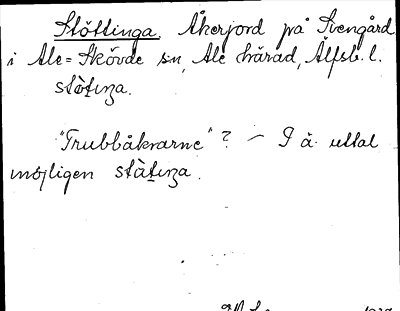 Stöttinga. Åkerjord på Svengård
i Ale-Skövde sn, Ale härad, Älfsb. l.
stöt̀ıŋa.
"Trubbåkrarne"? – I ä. uttal
möjligen stàt̀ıŋa.